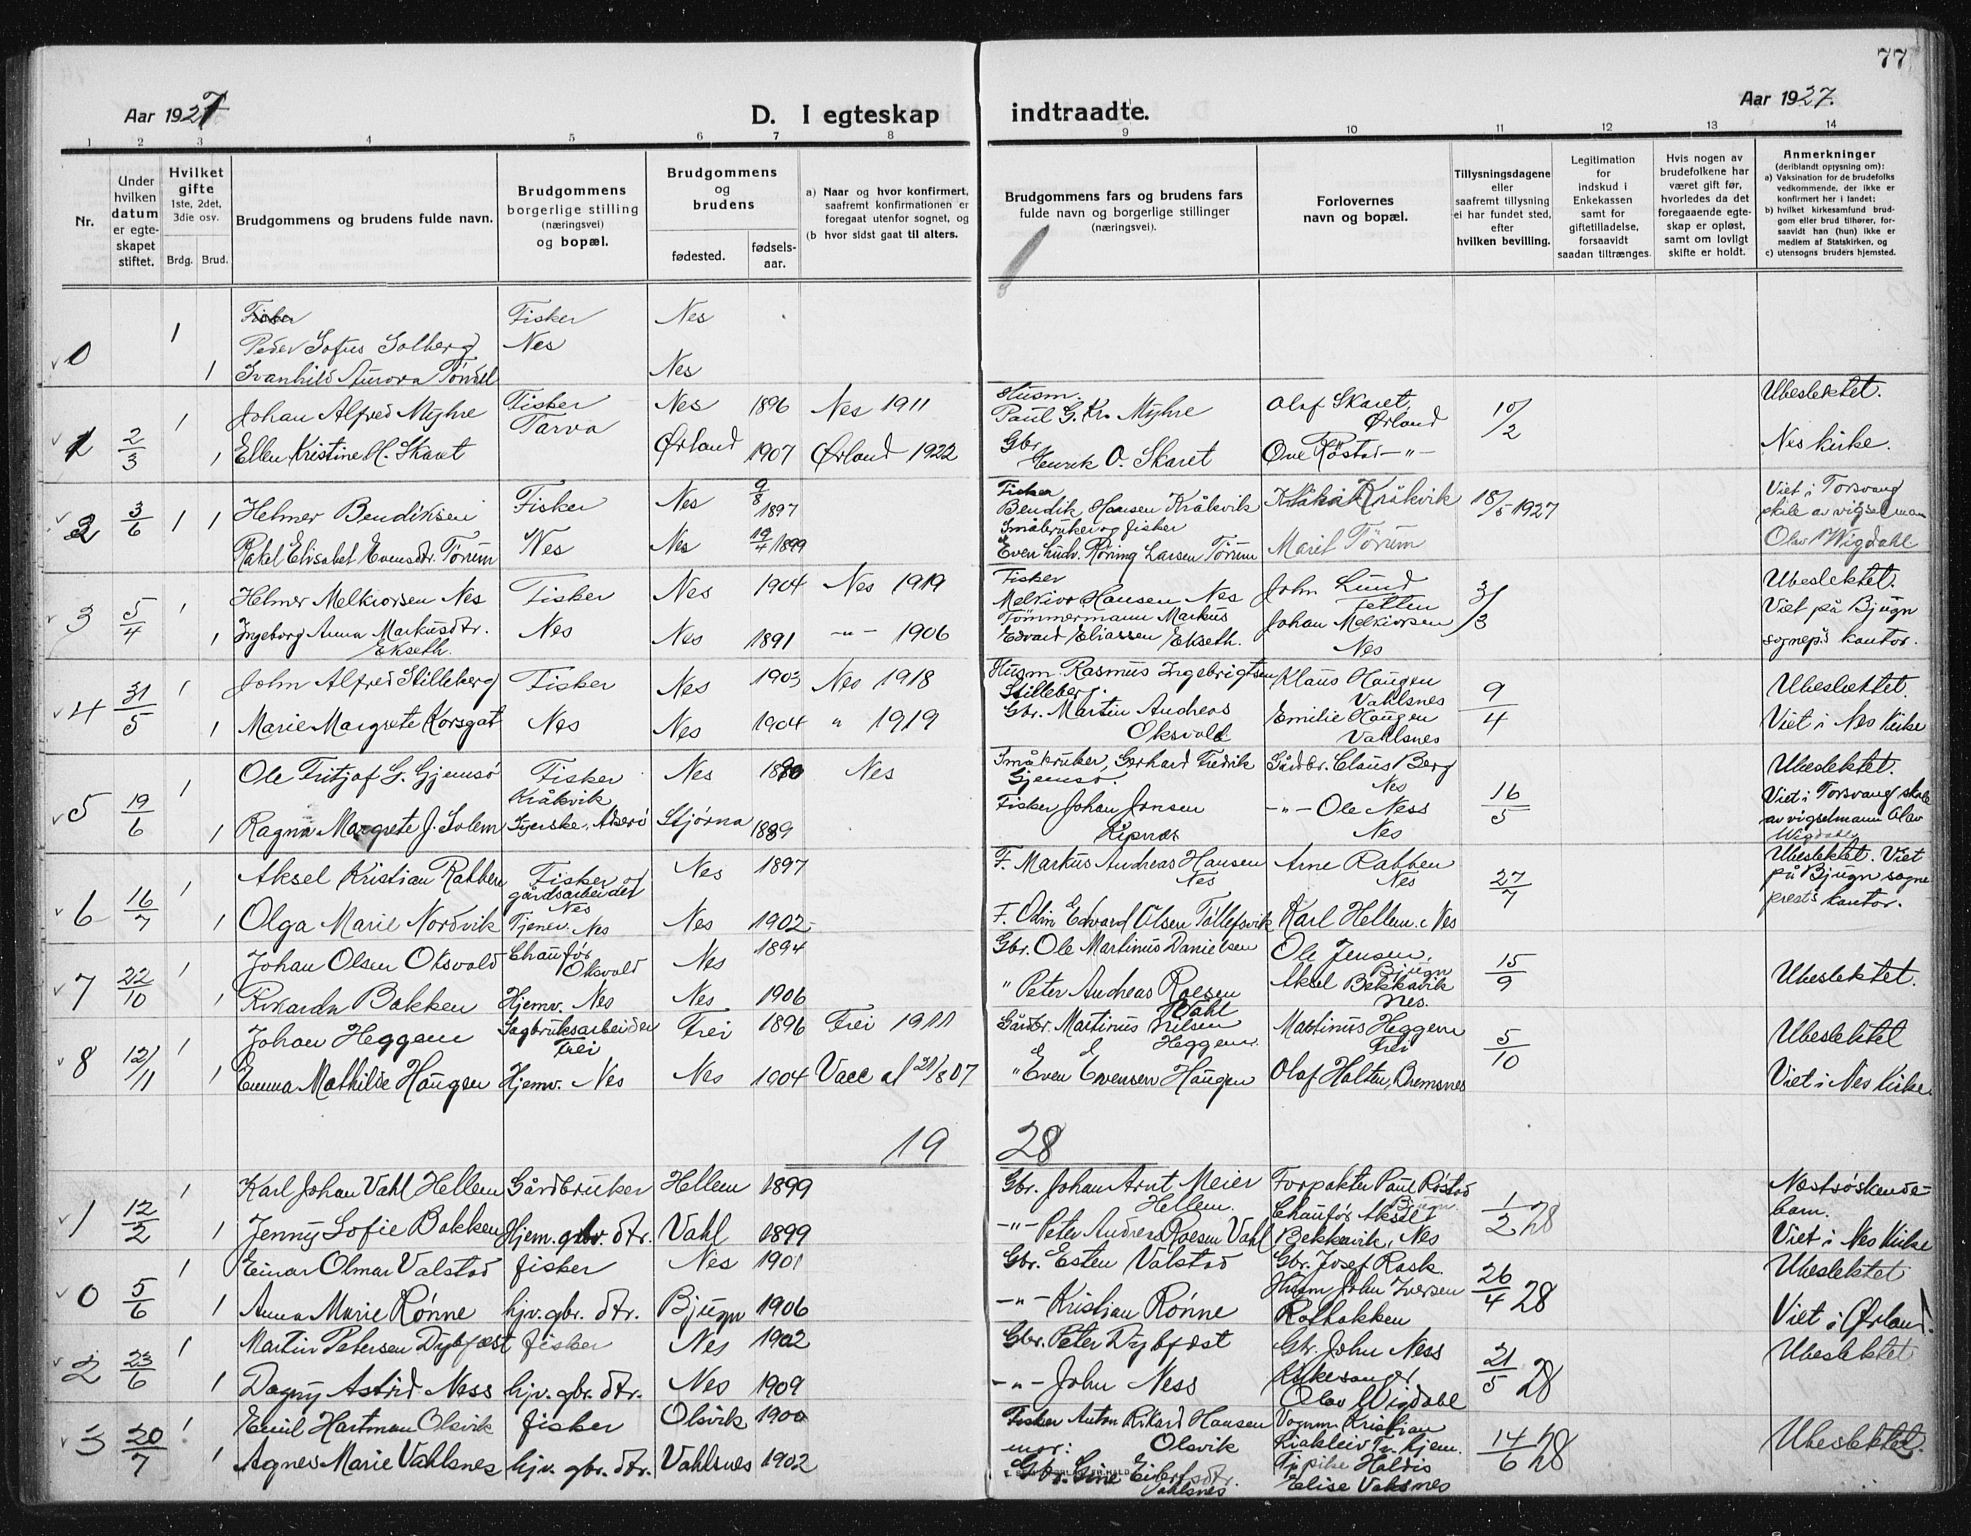 77
Aar 1927
D. I egteskap
indtraadte.
Aar 1927.
1 2 3 4 5 6 7 8 9 10 11 12 13 14
Nr.
Under hvilken datum er egteskapet stiftet.
Hvilket gifte 1ste, 2det, 3die osv.
Brdg. Brud.
Brudgommens og brudens fulde navn.
Brudgommens borgerlige stilling (næringsvei) og bopæl.
Brudgommens og brudens
fødested.
fødselsaar.
a) Naar og hvor konfirmert, saafremt konfirmationen er foregaat utenfor sognet, og
(b hvor sidst gaat til alters.
Brudgommens fars og brudens fars fulde navn og borgerlige stillinger (næringsvei).
Forlovernes navn og bopæl.
Tillysningsdagene eller saafremt tillysning ei har fundet sted, efter hvilken bevilling.
Legitimation for indskud i Enkekassen samt for giftetilladelse, forsaavidt saadan tiltrænges.
Hvis nogen av brudefolkene har været gift før, hvorledes da det foregaaende egteskap er opløst, samt om lovligt skifte er holdt.
Anmerkninger
(deriblandt opysning om):
a) Vaksination for de brudefolks vedkommende, der ikke er konfirmert her i landet;
b) hvilket kirkesamfund brudgom eller brud tilhører, forsaavidt han (hun) ikke er medlem av Statskirken, og
c) utensogns bruders hjemsted.
Fisker Fisker Nes
0 1 Peder Sofus Solberg Nes
1 Svanhild Aurora Tøndel Nes
1 2/3 1 Johan Alfred Myhre Fisker Tarva Nes 1896 Nes 1911 Husm. Paul G. Kr. Myhre Olaf Skaret, Ørland 10/2 Ubeslektet.
1 Ellen Kristine H. Skaret Ørland 1907 Ørland 1922 Gbr. Henrik O. Skaret Ove Røstad -"- Nes kirke.
2 3/6 1 1 Helmer Bendiksen Fisker Nes 9/8 1897 Fisker Bendik Hansen Kråkvik Kråkvik 18/5 1927 Viet i Torsvang skole av vigselmann
Rakel Elisabet Evensdtr. Tørum Nes Nes 19/4 1899 Småbruker og fisker Even Ludv. Røning Larsen Tørum Marit Tørum Olav Wigdahl
3 5/4 1 Helmer Melkiorsen Nes Fisker Nes 1904 Nes 1919 Fisker Melkior Hansen Nes John Lund Fetten 31/3 Ubeslektet.
1 Ingeborg Anna Markusdtr. Ekseth. Nes Nes 1891 -"- 1906 Tømmermann Markus Edvard Eliassen Ekseth. Johan Melkiorsen Nes Viet på Bjugn sognep's kontor.
4 31/5 1 John Alfred Stilleberg Fisker Nes 1903 Nes 1918 Husm. Rasmus Ingebrigtsen Stilleberg. Klaus Haugen Vahlsnes 9/4 Ubeslektet.
1 Marie Margrete Korsgat Nes Nes 1904 " 1919 Gbr. Martin Andreas Oksvold Emilie Haugen Vahlsnes Viet i Nes kirke
5 19/6 1 Ole Fritjof G. Gjemsø Fisker Kråkvik Nes Nes Småbruker, Gerhard Fredrik Gjemsø. Gårdbr. Claus Berg Nes 16/5 Ubeslektet.
1 Ragna Margrete J. Solem Stjørna 1889 Fisker Johan Jensen -"- Ole Ness Nes Viet i Torsvang skole av vigselmann Olav Wigdahl
6 16/7 1 Aksel Kristian Rabben Fisker og gårdsarbeider Nes Nes 1897 F. Markus Andreas Hansen Nes Arne Rabben Nes 27/7 Ubeslektet. Viet på Bjugn sogneprest's kontor.
1 Olga Marie Nordvik Tjener. Nes Nes 1902 F. Odin Edvard Olsen Tøllefsvik Karl Hellem. Nes
7 22/10 1 Johan Olsen Oksvold Chauffør Oksvold Nes 1894 Gbr. Ole Martinus Danielsen Ole Jensen, Bjugn 15/9 Ubeslektet.
1 Rikarda Bakken Hjemv. Nes Nes 1906 " Peter Andreas Roesen Vahl Aksel Bekkavik Nes.
8 12/11 1 Johan Heggem Sagbruksarbeider Frei Frei 1896 Frei 1911 Gårdbr. Martinus Nilsen Heggem Martinus Heggem Frei 5/10 Ubeslektet
1 Emma Mathilde Haugen Hjemv. Nes Nes 1904 Vacc " Even Evensen Haugen Olaf Holten, Bremsnes Viet i Nes kirke.
19 28
1 12/2 1 Karl Johan Vahl Hellem Gårdbruker Hellem 1899 Gbr. Johan Arnt Meier Hellem. Forpakter Paul Røstad Bjugn 1/2 28 Næstsøskendebarn.
1 Jenny Sofie Bakken Hjem. gbr. dtr. Vahl 1899 -"- Peter Andreas Roesen Vahl Chauffør Aksel Bekkavik, Nes Viet i Nes kirke
0 5/6 1 Einar Olmar Valstad fisker Nes 1901 Gbr. Esten Valstad Gbr. Josef Rask. 26/4 28 Ubeslektet
1 Anna Marie Rønne hjv. gbr. dtr. Bjugn 1906 -"- Kristian Rønne Husm John Iversen Viet i Ørland.
2 23/6 1 Martin Petersen Dybfæst fisker Nes 1902 Gbr. Peter Dybfæst Gbr. John Ness 21/5 28 Ubeslektet
1 Dagny Astrid Ness hjv. gbr. dtr. Nes 1909 -"- John Ness Kirkesanger Olav Wigdahl
3 20/7 1 Emil Hartman Olsvik fisker Olsvik 1900 Fisker Anton Rikard Hansen Olsvik 14/6 28 Ubeslektet.
1 Agnes Marie Vahlsnes hjv. gbr. dtr. Vahlsnes 1902 mor: Gbr. Gine Eilertsdtr. Vahlsnes Elise Valsnes